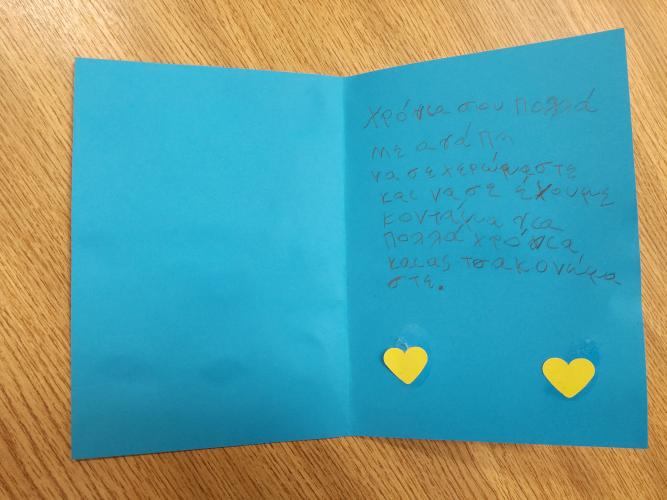 Χρόνια σου πολλά
με αγάπη
να σε χερώμαστε
και να σε έχουμε
κοντάμα για
πολλά χρόνια
και ας τσακονώμα
στε.